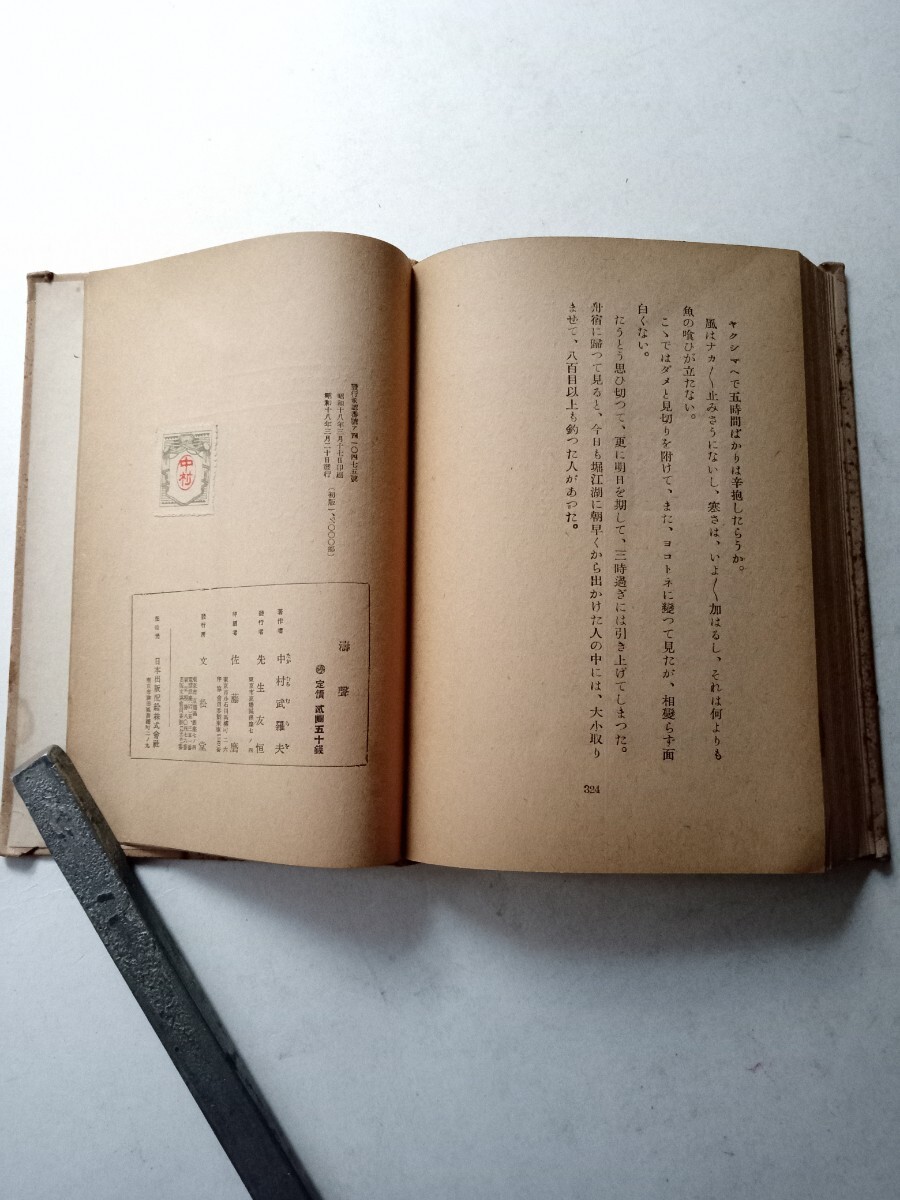 ヤクシマヘで五時間ばかりは辛抱したらうか。
風はナカ〳〵止みさうにないし、寒さは、いよ〳〵加はるし、それは何よりも
魚の喰ひが立たない。
こゝではダメと見切りを附けて、また、ヨコトネに變つて見たが、相變らず面
白くない。
たうとう思ひ切つて、更に明日を期して、三時過ぎには引き上げてしまつた。
舟宿に歸つて見ると、今日も堀江湖に朝早くから出かけた人の中には、大小取り
ませて、八百目以上も釣つた人があつた。
324
昭和十八年三月十七日印刷
昭和十八年三月二十日發行
中村
濤聲
定價 貳圓五十錢
著作者 中村武羅夫
發行者 先生友恒
印刷者 佐藤
發行所 文松堂
日本出版配給株式會社